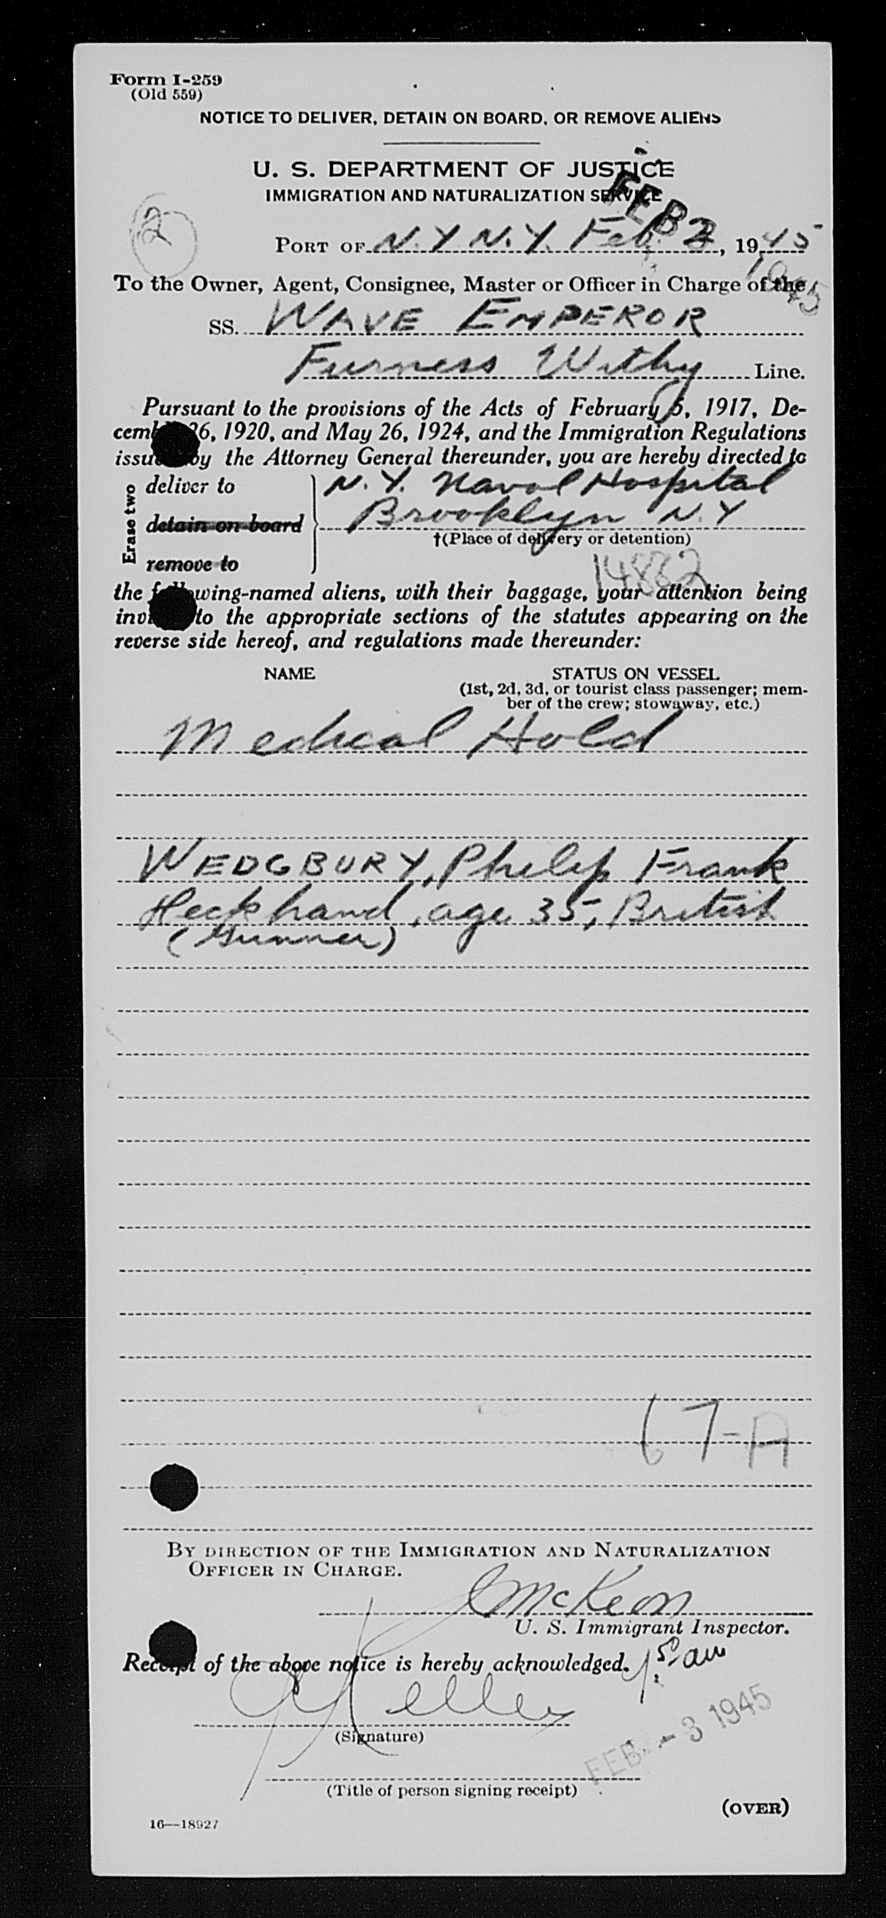 Form I-259
(Old 559)
NOTICE TO DELIVER, DETAIN ON BOARD, OR REMOVE ALIENS
U. S. DEPARTMENT OF JUSTICE
IMMIGRATION AND NATURALIZATION SERVICE
FEB 3 1945
2
PORT OF N.Y. N.Y. Feb. 2, 1945
To the Owner, Agent, Consignee, Master or Officer in Charge of the
SS. WAVE EMPEROR
Furness Withy Line.
Pursuant to the provisions of the Acts of February 5, 1917, De-
cember 26, 1920, and May 26, 1924, and the Immigration Regulations
issued by the Attorney General thereunder, you are hereby directed to
Erase two
deliver to N.Y. Naval Hospital
detain on board Brooklyn N.Y
†(Place of delivery or detention)
remove to
14882
the following-named aliens, with their baggage, your attention being
invited to the appropriate sections of the statutes appearing on the
reverse side hereof, and regulations made thereunder:
NAME STATUS ON VESSEL
(1st, 2d, 3d, or tourist class passenger; mem-
ber of the crew; stowaway, etc.)
Medical Hold
WEDGBURY, Philip Frank
Deckhand, age 35, British
(Gunner)
67-A
BY DIRECTION OF THE IMMIGRATION AND NATURALIZATION
OFFICER IN CHARGE.
McKeon
U. S. Immigrant Inspector.
Receipt of the above notice is hereby acknowledged.
(Signature)
FEB - 3 1945
(Title of person signing receipt)
(OVER)
16—18927